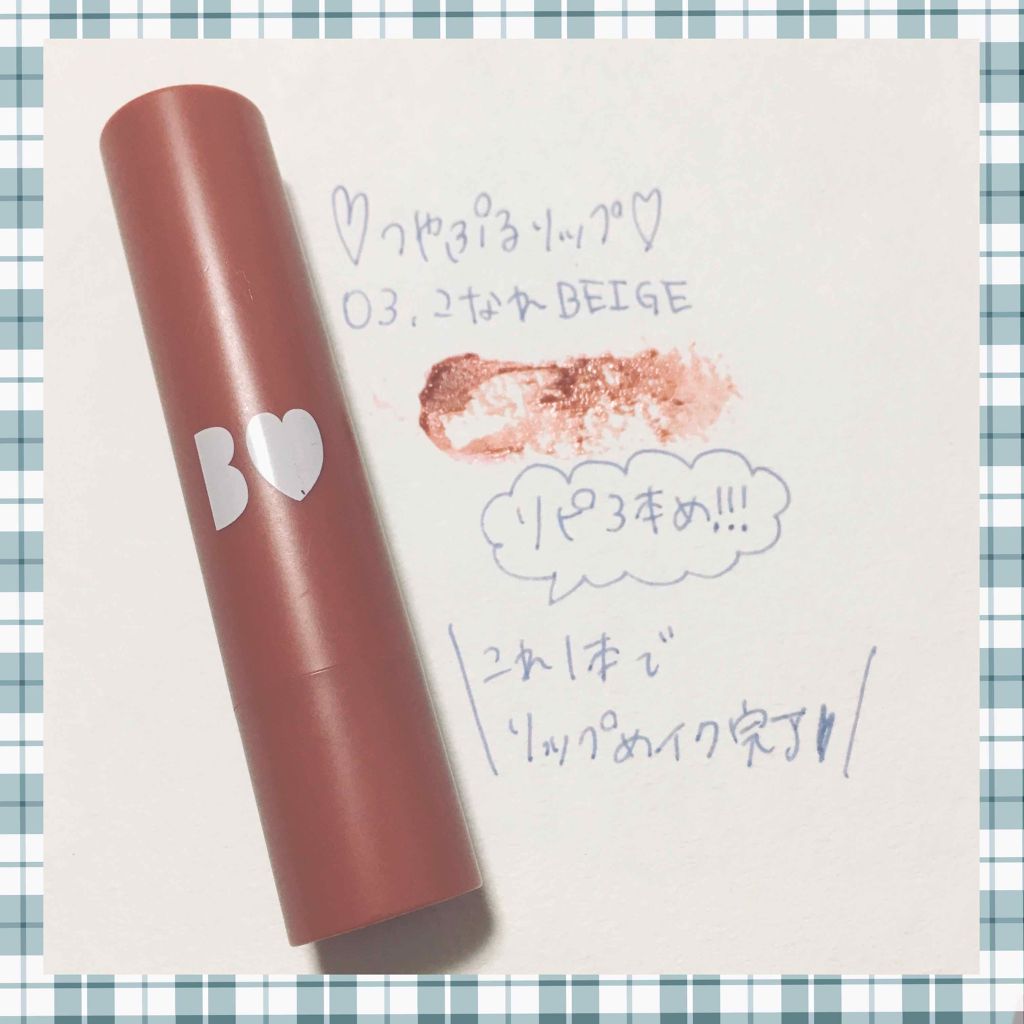 B♥
♡つやぷるリップ♡
03.こなれBEIGE
リピ3本め!!!
\これ1本で
リップめイク完了♥/